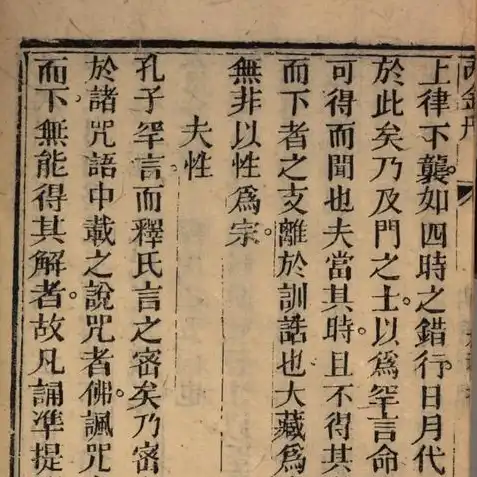 上律下襲。如四時之錯行。日月代
於此矣乃及門之士。以爲罕言命
可得而聞也夫當其時。且不得其
而下者之支離於訓詁也大藏爲
無非以性爲宗。
夫性
孔子罕言。而釋氏言之密矣乃密
於諸咒語中載之說咒者。佛諷咒
而下無能得其解者。故凡誦準提